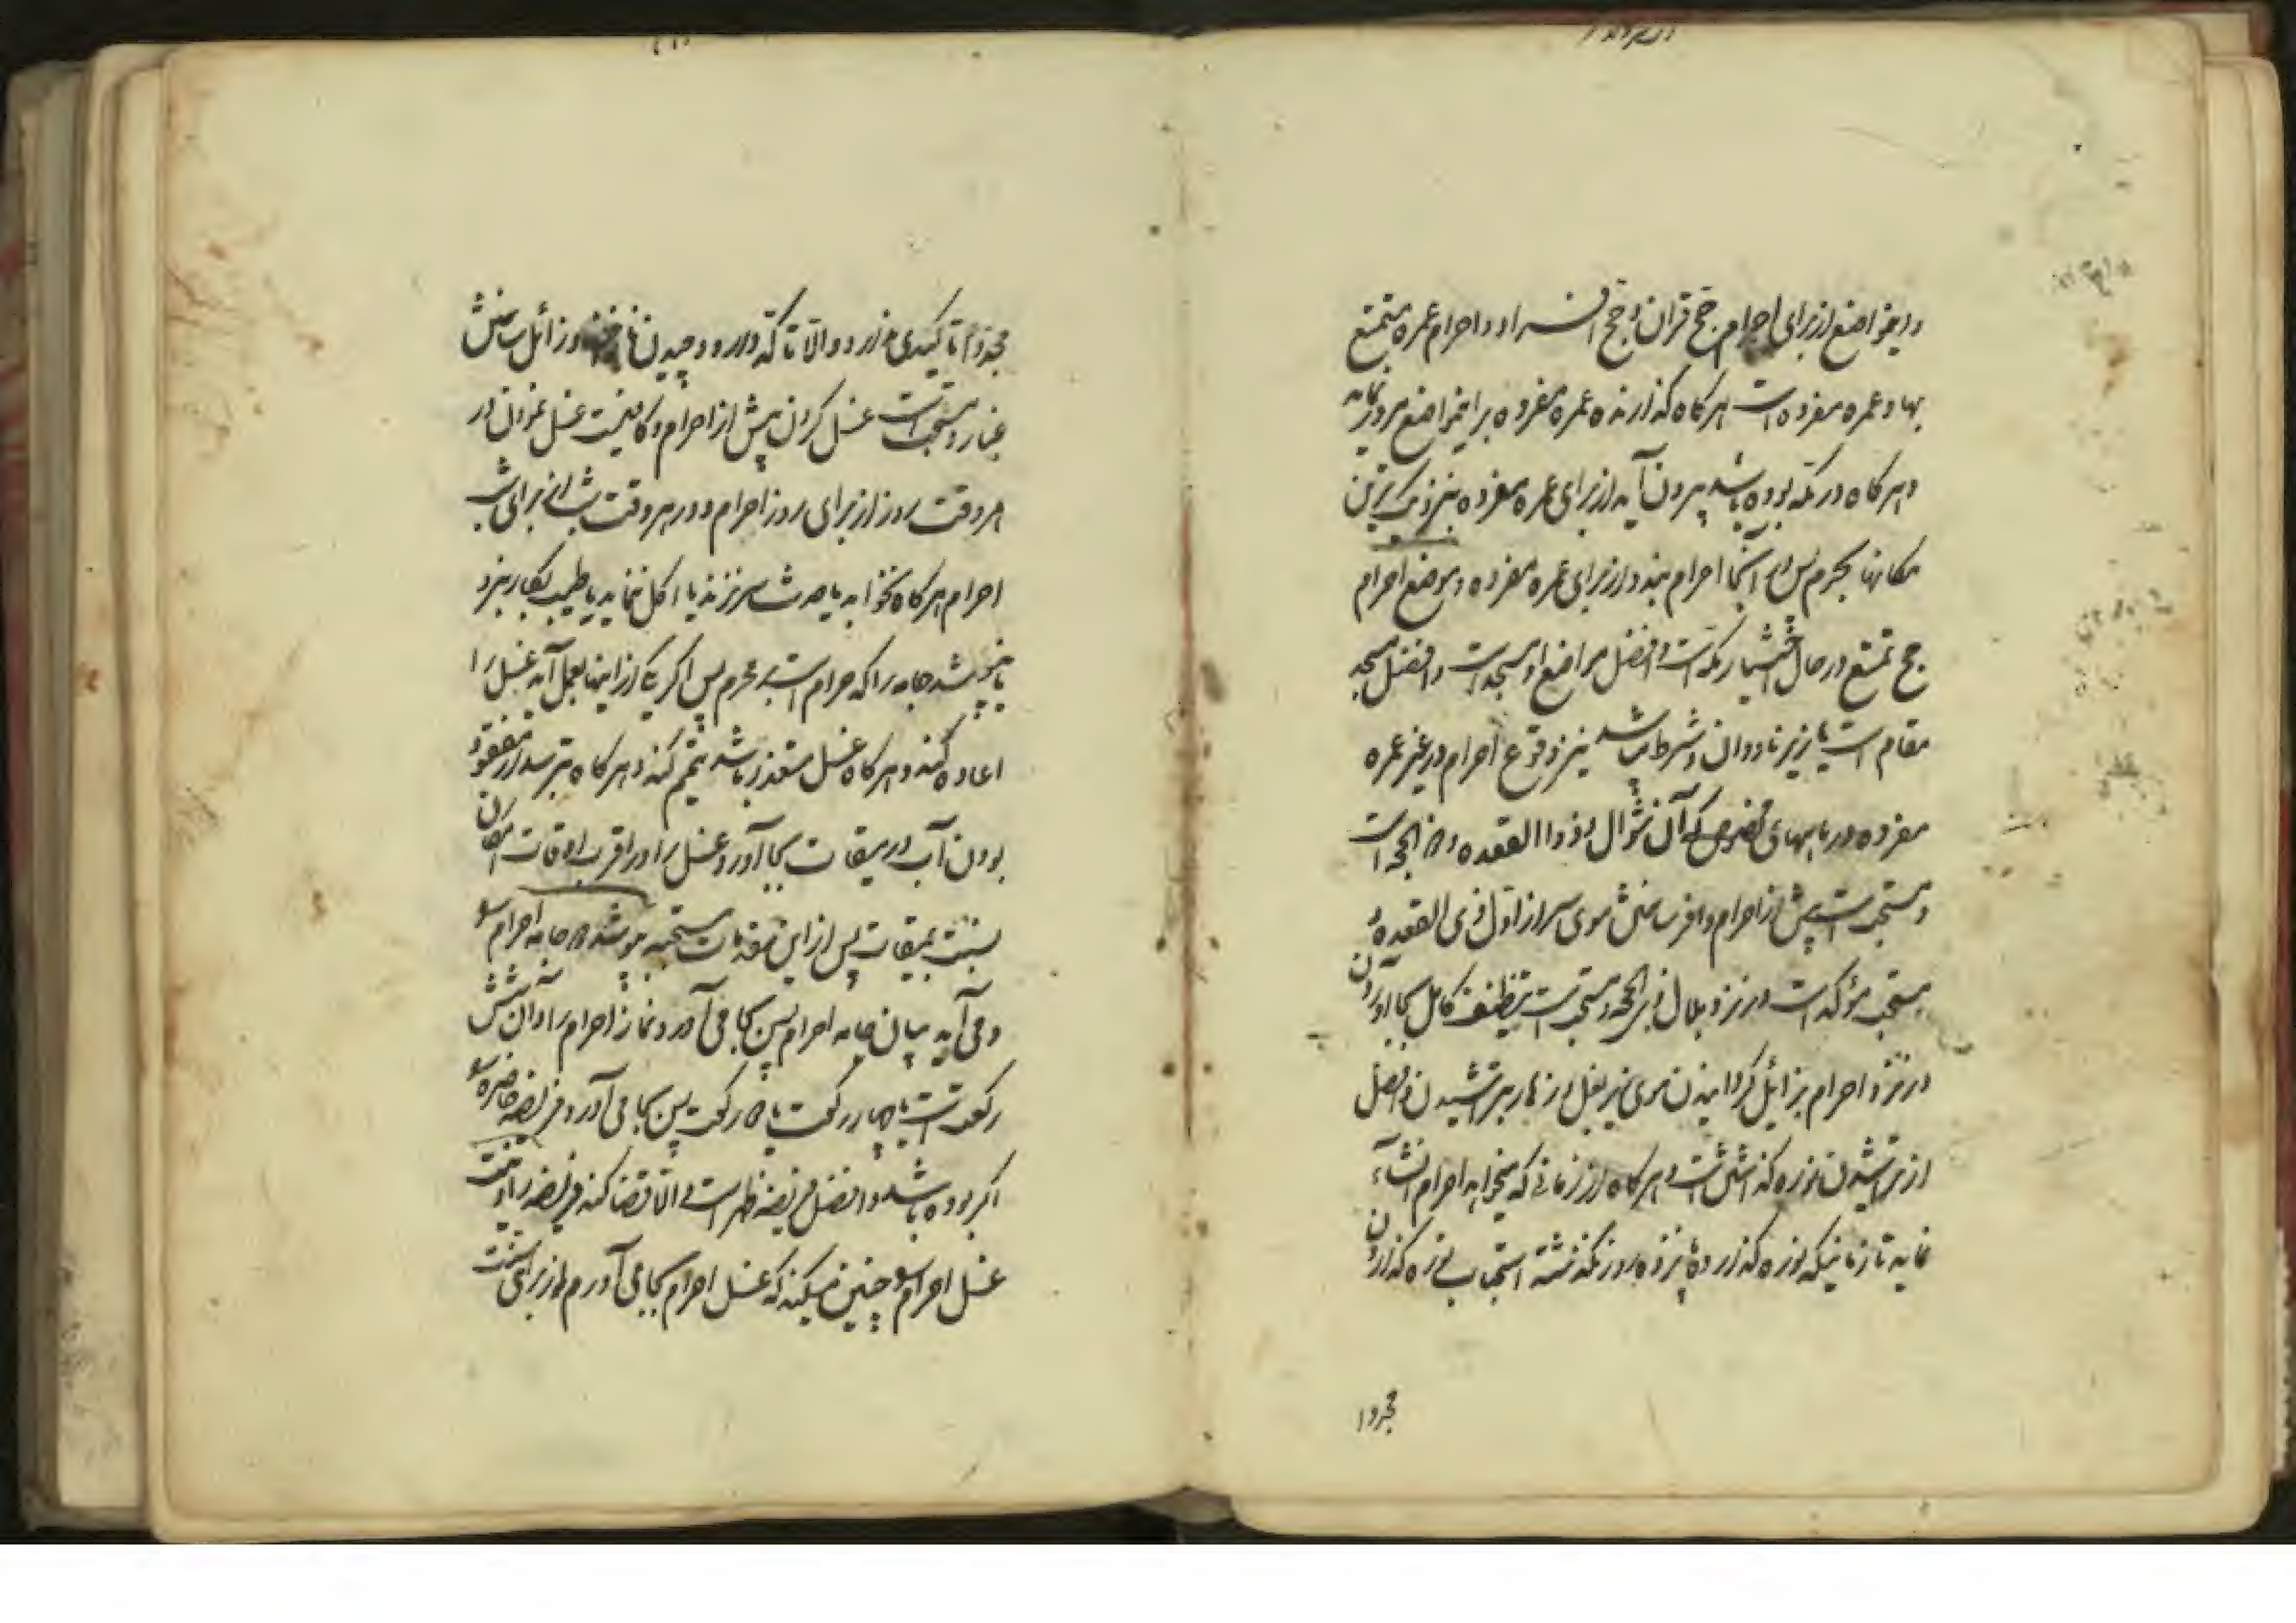 و این مواضع از برای احرام حج قران و حج افراد و احرام عمره متمتع
بها و عمره مفرده است هرگاه گذارنده عمره مفرده بر این مواضع مرور نماید
و هرگاه در مکه بوده باشد بیرون آید از برای عمره مفرده بنزدیک ترین
مکانها بحرم پس از آنجا احرام بندد از برای عمره مفرده و موضع احرام
حج تمتع در حال اختیار مکه است و افضل مواضع او مسجد است و افضل مسجد
مقام است یا زیر ناودان و شرط میباشد نیز وقوع احرام در غیر عمره
مفرده در ماههای مخصوص که آن شوال و ذوا القعده و ذالحجه است
و مستحب است پیش از احرام وافر ساختن موی سر از اول ذی القعده و
مستحب مؤکد است در نزد هلال ذی الحجه و مستحب است تنظیف کامل بجا آوردن
در نزد احرام بزائل گردانیدن موی زیر بغل و زهار بتراشیدن و افضل
از تراشیدن نوره گذاشتن است و هرگاه از زمانی که میخواهد احرام انشاء
نماید تا زمانیکه نوره گذارده پانزده روز نگذشته استحباب نوره گذاردن
مجددا
مجددا تاکیدی ندارد و الا تاکد دارد و چیدن ناخن و زائل ساختن
غبار و مستحب است غسل کردن پیش از احرام و کافیست غسل نمودن در
هر وقت روز از برای روز احرام و در هر وقت شب از برای شب
احرام هرگاه نخوابد یا حدث سر نزند یا اکل ننماید یا طیب بکار نبرد
یا نپوشد جامه را که حرام است بر محرم پس اگر یکی از اینها بعمل آید غسل را
اعاده کند و هرگاه غسل متعذر باشد تیمم کند و هرگاه بترسد از مفقود
بودن آب در میقات بجا آورد غسل را در اقرب اوقات امکان
بنسبت بمیقات پس از این مقدمات مستحبه میپوشد دو جامه احرام
و می آید بیان جامه احرام پس بجا می آورد نماز احرام را و آن شش
رکعت است یا چهار رکعت یا دو رکعت پس بجا می آورد فریضه حاضره
اگر بوده باشد و افضل فریضه ظهر است و الا قضا کند فریضه را و نیت
غسل احرام چنین میکند که غسل احرام بجا می آورم از برای سنت